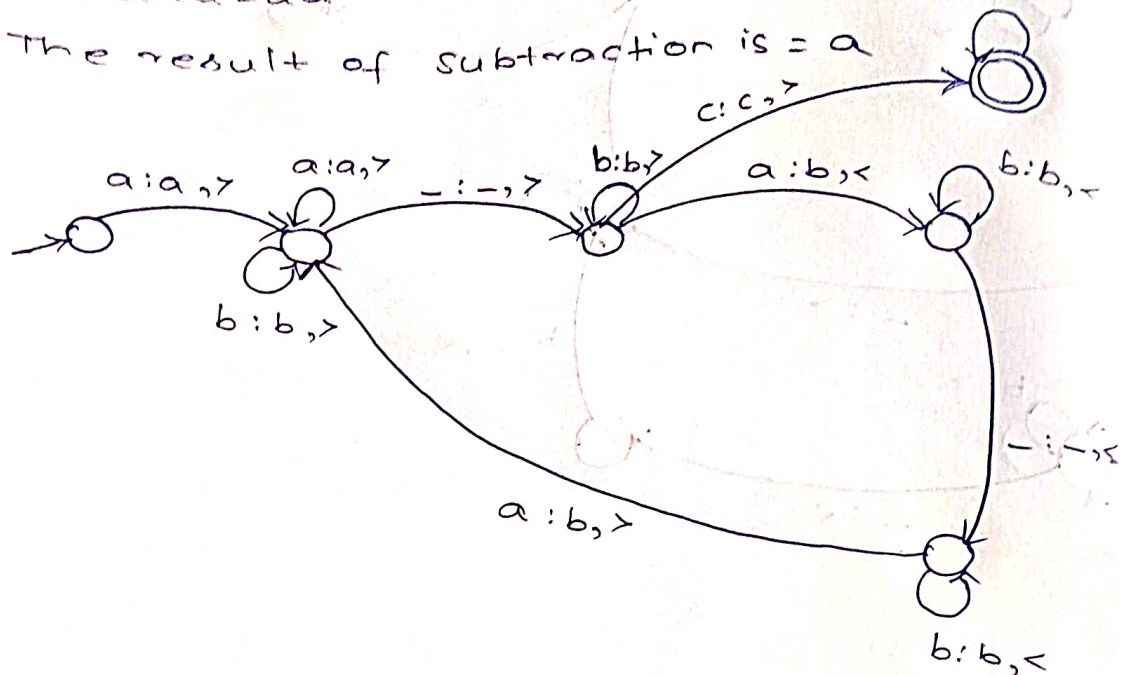 The result of subtraction is = a
c:c,>
a:a,>
a:a,>
_:-,>
b:b,>
a:b,<
b:b,<
b:b,>
_:-,<
a:b,>
b:b,<